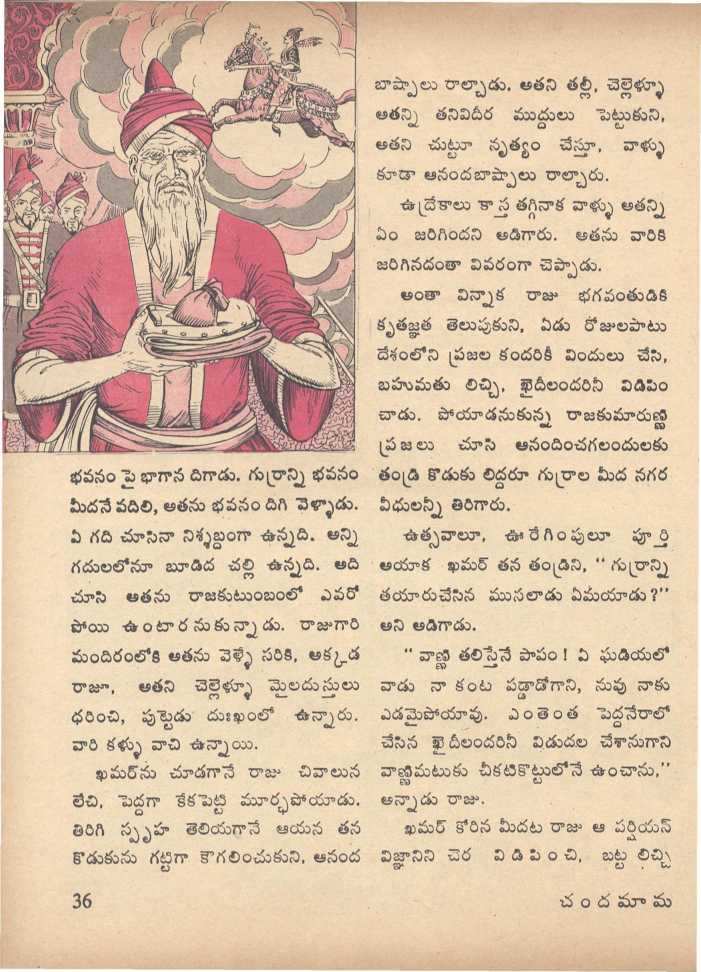 భవనం పై భాగాన దిగాడు. గుర్రాన్ని భవనం
మీదనే వదిలి, అతను భవనం దిగి వెళ్ళాడు.
ఏ గది చూసినా నిశ్శబ్దంగా ఉన్నది. అన్ని
గదులలోనూ బూడిద చల్లి ఉన్నది. అది
చూసి అతను రాజకుటుంబంలో ఎవరో
పోయి ఉంటారనుకున్నాడు. రాజుగారి
మందిరంలోకి అతను వెళ్ళే సరికి, అక్కడ
రాజూ, అతని చెల్లెళ్ళూ మైలదుస్తులు
ధరించి, పుట్టెడు దుఃఖంలో ఉన్నారు.
వారి కళ్ళు వాచి ఉన్నాయి.
ఖమర్‌ను చూడగానే రాజు చివాలున
లేచి, పెద్దగా కేకపెట్టి మూర్ఛపోయాడు.
తిరిగి స్పృహ తెలియగానే ఆయన తన
కొడుకును గట్టిగా కౌగలించుకుని, ఆనంద
బాష్పాలు రాల్చాడు. అతని తల్లీ, చెల్లెళ్ళూ
అతన్ని తనివిదీర ముద్దులు పెట్టుకుని,
అతని చుట్టూ నృత్యం చేస్తూ, వాళ్ళు
కూడా ఆనందబాష్పాలు రాల్చారు.
ఉద్రేకాలు కాస్త తగ్గినాక వాళ్ళు అతన్ని
ఏం జరిగిందని అడిగారు. అతను వారికి
జరిగినదంతా వివరంగా చెప్పాడు.
అంతా విన్నాక రాజు భగవంతుడికి
కృతజ్ఞత తెలుపుకుని, ఏడు రోజులపాటు
దేశంలోని ప్రజల కందరికీ విందులు చేసి,
బహుమతు లిచ్చి, ఖైదీలందరినీ విడిపిం
చాడు. పోయాడనుకున్న రాజకుమారుణ్ణి
ప్రజలు చూసి ఆనందించగలందులకు
తండ్రి కొడుకు లిద్దరూ గుర్రాల మీద నగర
వీధులన్నీ తిరిగారు.
ఉత్సవాలూ, ఊరేగింపులూ పూర్తి
అయాక ఖమర్ తన తండ్రిని, "గుర్రాన్ని
తయారుచేసిన ముసలాడు ఏమయాడు?"
అని అడిగాడు.
"వాణ్ణి తలిస్తేనే పాపం! ఏ ఘడియలో
వాడు నా కంట పడ్డాడోగాని, నువు నాకు
ఎడమైపోయావు. ఎంతెంత పెద్దనేరాలో
చేసిన ఖైదీలందరినీ విడుదల చేశానుగాని
వాణ్ణిమటుకు చీకటికొట్టులోనే ఉంచాను,"
అన్నాడు రాజు.
ఖమర్ కోరిన మీదట రాజు ఆ పర్షియన్
విజ్ఞానిని చెర విడిపించి, బట్ట లిచ్చి
36
చందమామ